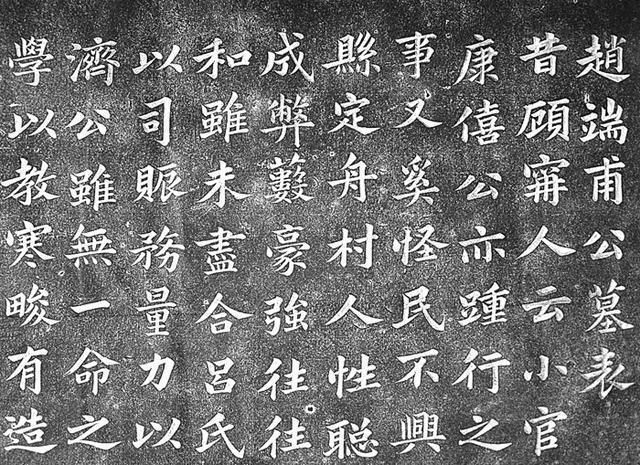 趙端甫公墓表
昔顧甯人云小官
康僖公亦踵行之
事又奚怪民不興
縣定舟村人性聰
成弊藪豪強往往
和雖未盡合呂氏
以司賑務量力以
濟公雖無一命之
學以教寒畯有造